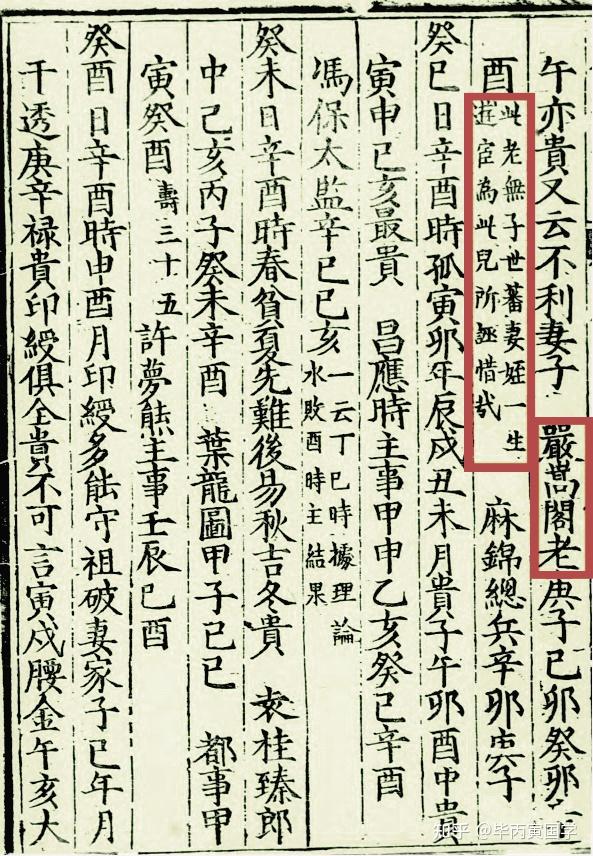 午亦貴又云不利妻子 嚴嵩閣老庚子己卯癸卯辛
酉 此老無子世蕃妻姪一生
遊宦為此兒所誣惜哉
麻錦總兵辛卯庚子
癸巳日辛酉時孤寅卯年辰戌丑未月貴子午卯酉中貴
寅申巳亥最貴 昌應時主事甲申乙亥癸巳辛酉
馮保太監辛巳己亥 一云丁巳時據理論
水敗酉時主結果
癸未日辛酉時春貧夏先難後易秋吉冬貴 袁桂臻郎
中己亥丙子癸未辛酉 葉龍圖甲子己巳 都事甲
寅癸酉 壽三十五 許夢熊主事壬辰己酉
癸酉日辛酉時申酉月印綬多能守祖破妻家子巳年月
干透庚辛祿貴印綬俱全貴不可言寅戌腰金午亥大
知乎 @毕丙寅国学